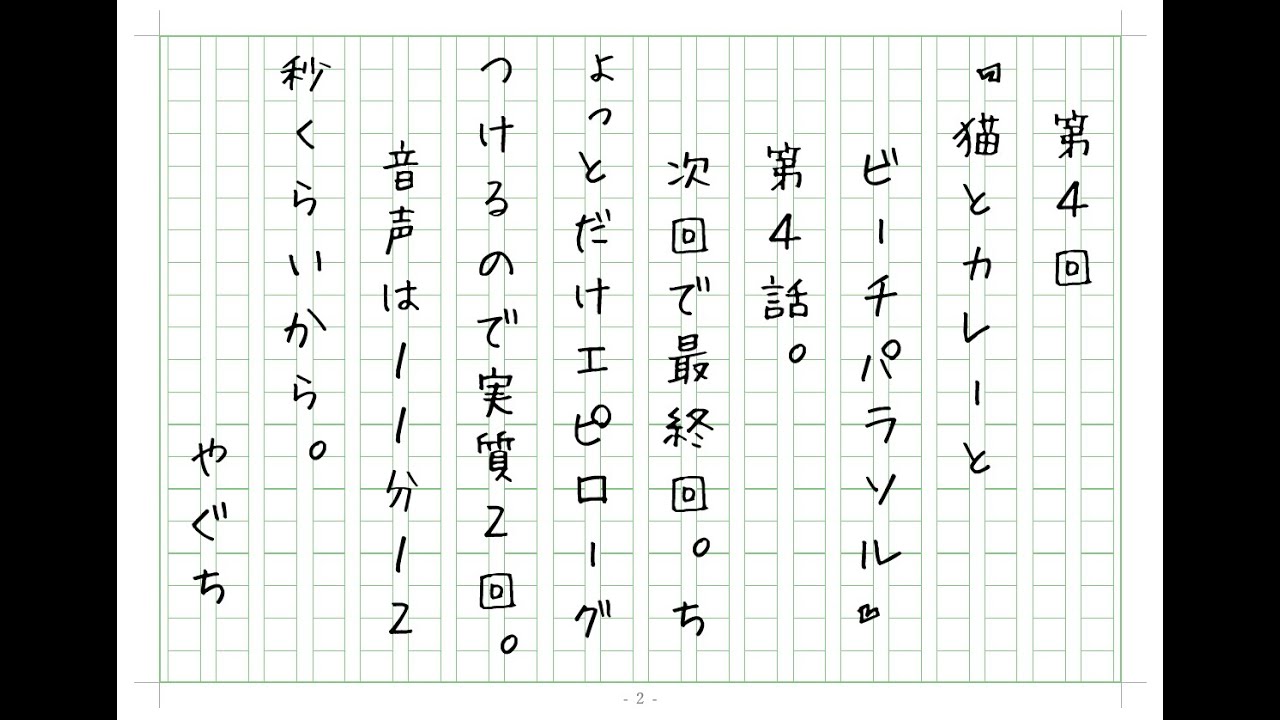 第4回
『猫とカレーと
ビーチパラソル』
第4話。
次回で最終回。ち
ょっとだけエピローグ
つけるので実質2回。
音声は11分12
秒くらいから。
やぐち
- 2 -